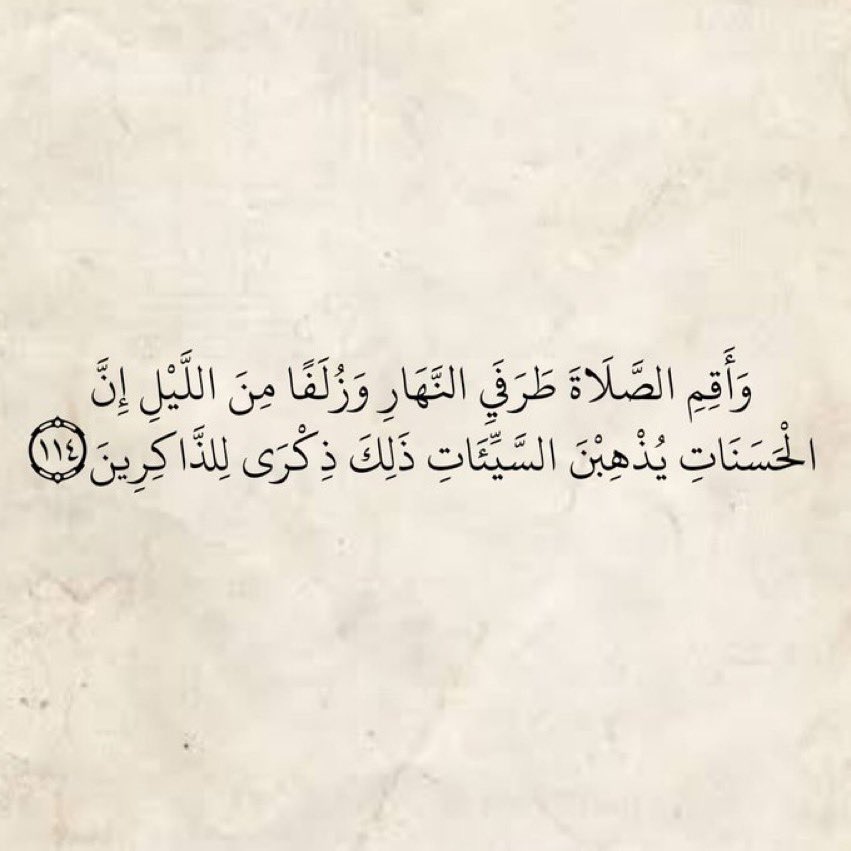 وَأَقِمِ الصَّلَاةَ طَرَفَيِ النَّهَارِ وَزُلَفًا مِنَ اللَّيْلِ إِنَّ
الْحَسَنَاتِ يُذْهِبْنَ السَّيِّئَاتِ ذَلِكَ ذِكْرَى لِلذَّاكِرِينَ ١١٤